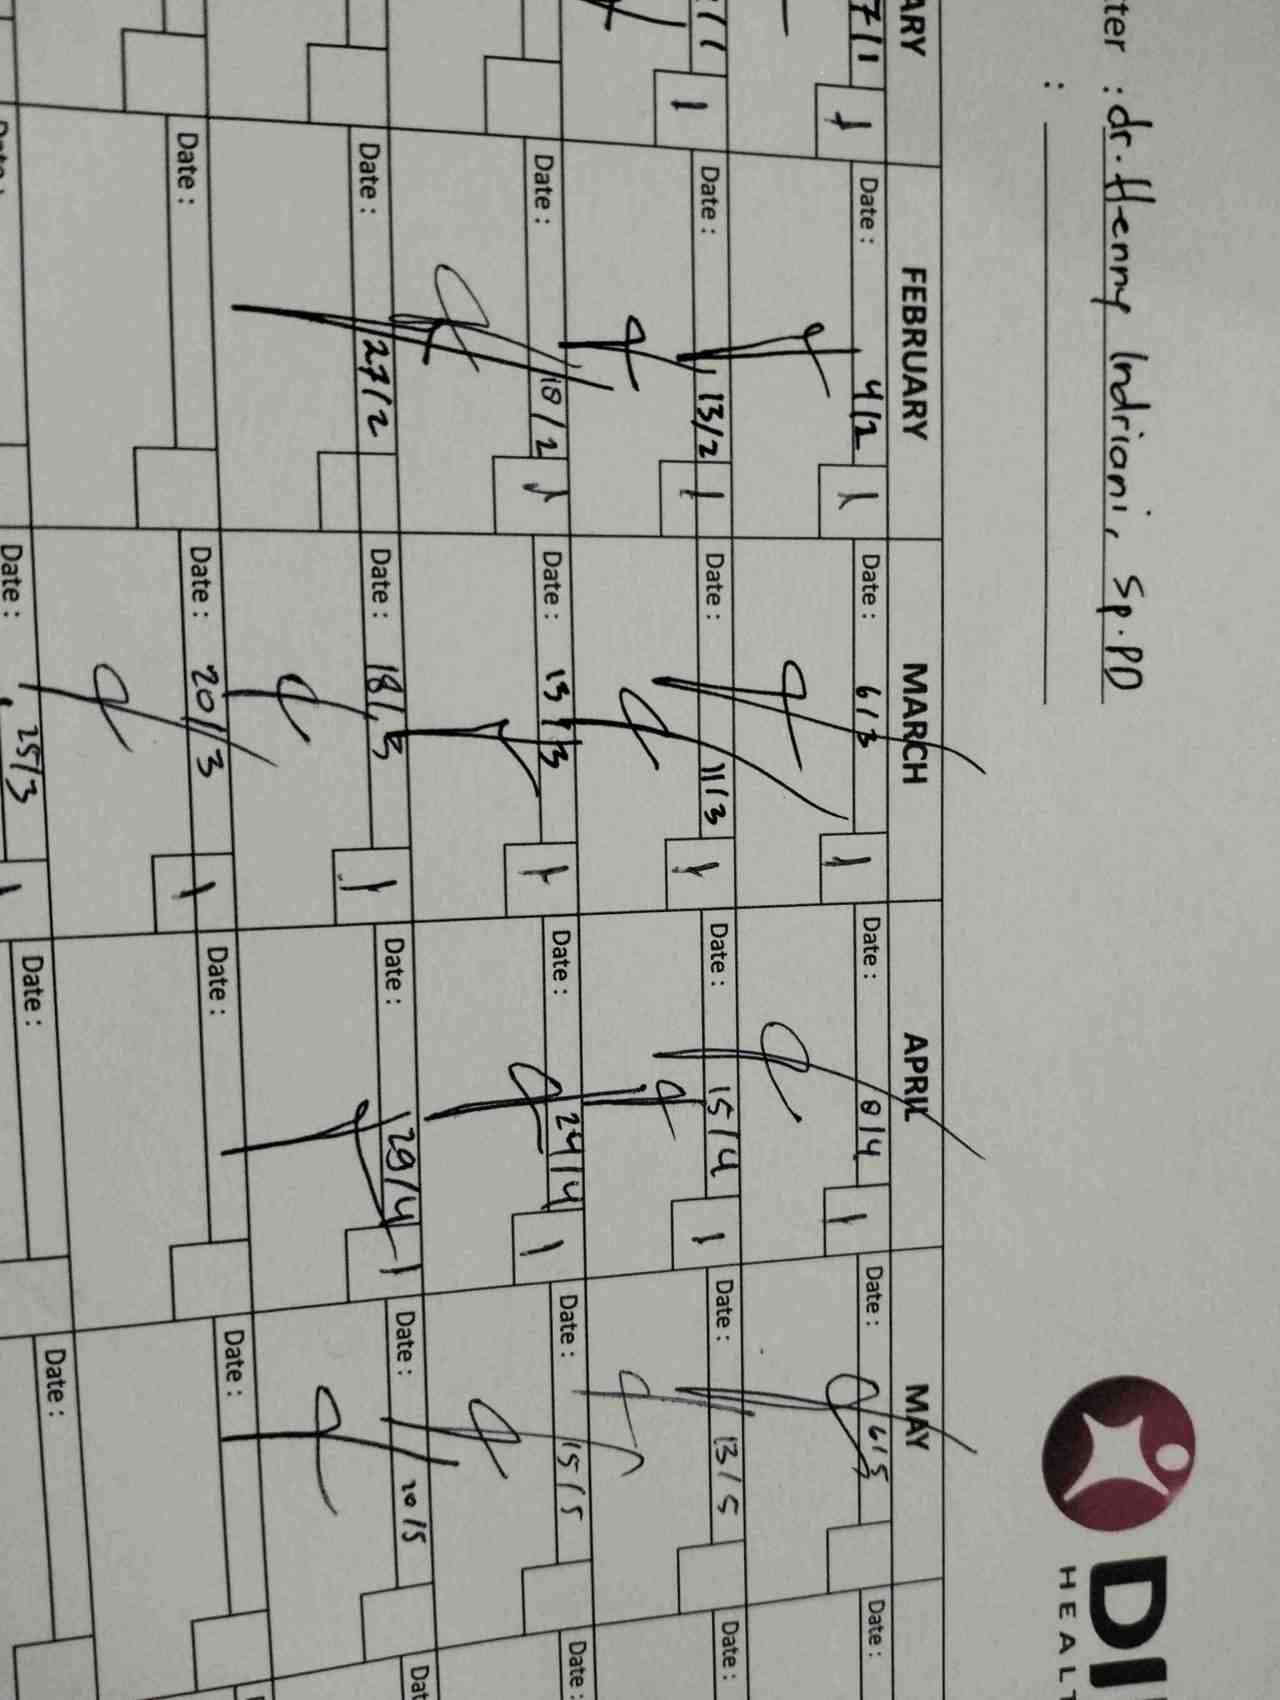 ter : dr. Henny Indriani, Sp.PD
:
DI
HEALT
ARY FEBRUARY MARCH APRIL MAY
7/1 Date : 4/2 Date : 6/3 Date : 8/4 Date : 6/5 Date :
1 1 1 1
Date : 13/2 Date : 11/3 Date : 15/4 Date : 13/5 Date :
1 1 1 1
Date : 18/2 Date : 13/3 Date : 24/4 Date : 15/5 Date :
1 1 1
Date : 27/2 Date : 18/3 Date : 29/4 Date : 20/5 Dat
1 1
Date : Date : 20/3 Date : Date :
1
Date : Date : 25/3 Date : Date :
1